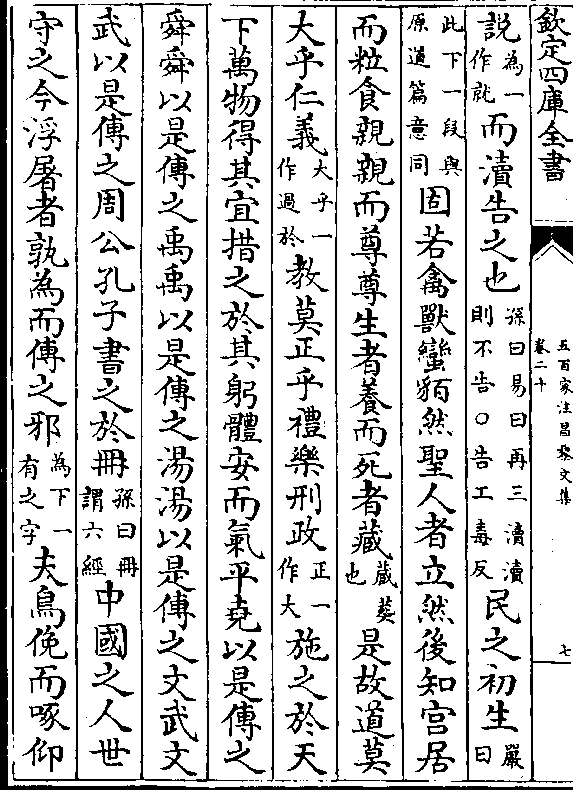 欽定四庫全書
五百家注昌黎文集
卷二十
七
說為一作說而瀆告之也孫曰易曰再三瀆瀆則不告○告工毒反民之初生嚴曰
此下一段與原道篇意同固若禽獸蠻貊然聖人者立然後知宫居
而粒食親親而尊尊生者養而死者藏藏葬也是故道莫
大乎仁義大乎一作過於教莫正乎禮樂刑政正一作大施之於天
下萬物得其宜措之於其躬體安而氣平堯以是傳之
舜舜以是傳之禹禹以是傳之湯湯以是傳之文武文
武以是傳之周公孔子書之於冊孫曰冊謂六經中國之人世
守之今浮屠者孰為而傳之邪為下一有之字夫鳥俛而啄仰